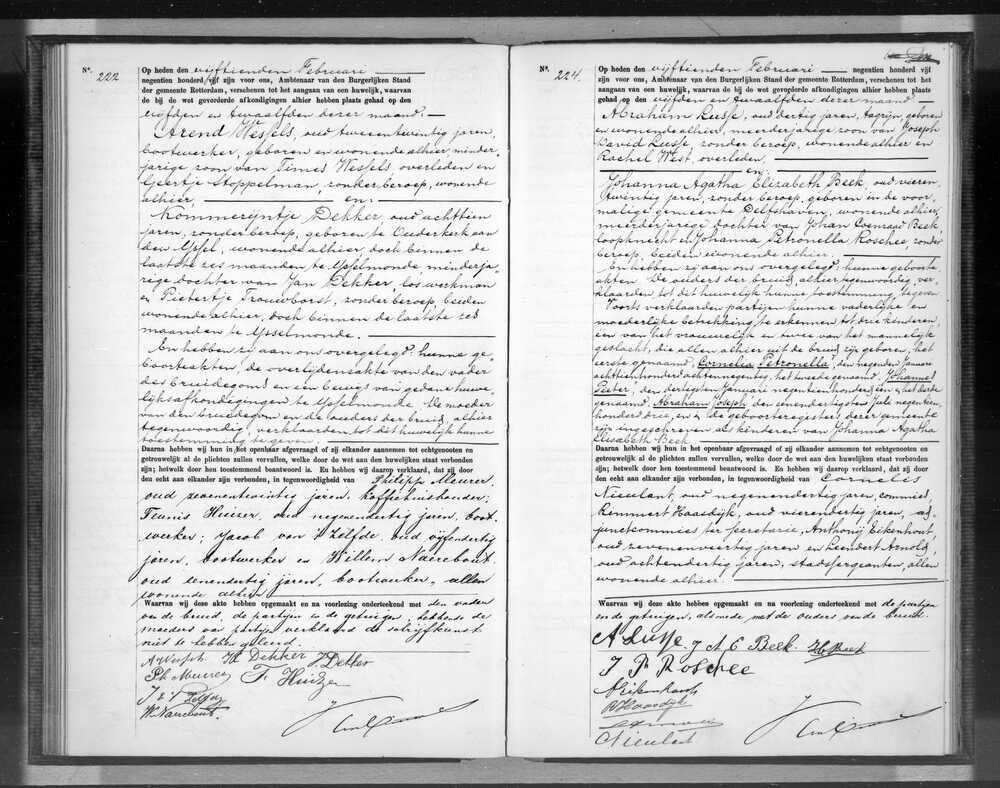 Nº. 222
Op heden den vijftienden Februari
negentien honderd vijf zijn voor ons, Ambtenaar van den Burgerlijken Stand
der gemeente Rotterdam, verschenen tot het aangaan van een huwelijk, waarvan
de bij de wet gevorderde afkondigingen alhier hebben plaats gehad op den
vijfden en twaalfden dezer maand:
Arend Wessels, oud tweeentwintig jaren,
bootwerker, geboren en wonende alhier minder-
jarige zoon van Times Wessels, overleden en
Geertje Stoppelman, zonder beroep, wonende
alhier, en:
Kommerijntje Dekker, oud achttien
jaren, zonder beroep, geboren te Ouderkerk aan
den IJssel, wonende alhier doch binnen de
laatste zes maanden te IJsselmonde, minderja-
rige dochter van Jan Dekker, los werkman
en Pietertje Trouwborst, zonder beroep, beiden
wonende alhier, doch binnen de laatste zes
maanden te IJsselmonde.
En hebben zij aan ons overgelegd: hunne ge-
boorteakten, de overlijdensakte van den vader
des bruidegoms en een bewijs van gedane huwe-
lijksafkondigingen te IJsselmonde. De moeder
van den bruidegom en de ouders der bruid, alhier
tegenwoordig, verklaarden tot dit huwelijk hunne
toestemming te geven.
Daarna hebben wij hun in het openbaar afgevraagd of zij elkander aannemen tot echtgenooten en
getrouwelijk al de plichten zullen vervullen, welke door de wet aan den huwelijken staat verbonden
zijn; hetwelk door hen toestemmend beantwoord is. En hebben wij daarop verklaard, dat zij door
den echt aan elkander zijn verbonden, in tegenwoordigheid van Philipp Meurer,
oud zevenentwintig jaren, koffiehuishouder;
Teunis Huizer, oud negenendertig jaren, boot-
werker; Jacob van 't Zelfde, oud vijfendertig
jaren, bootwerker en Willem Naerebout,
oud eenendertig jaren, bootwerker, allen
wonende alhier.
Waarvan wij deze akte hebben opgemaakt en na voorlezing onderteekend met den vader
van de bruid, de partijen en de getuigen, hebbende de
moeders van partijen verklaard de schrijfkunst
niet te hebben geleerd.
A Wessels K Dekker J Dekker
Ph Meurer T Huizer
J v 't Zelfde
W. Naerebout.
Nº. 224.
Op heden den vijftienden Februari negentien honderd vijf
zijn voor ons, Ambtenaar van den Burgerlijken Stand der gemeente Rotterdam, verschenen tot het
aangaan van een huwelijk, waarvan de bij de wet gevorderde afkondigingen alhier hebben plaats
gehad op den vijfden en twaalfden dezer maand
Abraham Lusse, oud dertig jaren, geboren
en wonende alhier, meerderjarige zoon van Joseph
David Lusse, zonder beroep, wonende alhier en
Rachel West, overleden.
en:
Johanna Agatha Elizabeth Beek, oud vieren-
twintig jaren, zonder beroep, geboren in de voor-
malige gemeente Delfshaven, wonende alhier,
meerderjarige dochter van Johan Coenraad Beek,
loopknecht en Johanna Petronella Roschee, zonder
beroep, beiden wonende alhier.
En hebben zij aan ons overgelegd: hunne geboorte-
akten. De ouders der bruid, alhier tegenwoordig, ver-
klaarden tot dit huwelijk hunne toestemming te geven.
Voorts verklaarden partijen hunne vaderlijke en
moederlijke betrekking te erkennen tot drie kinderen,
een van het vrouwelijk en twee van het mannelijk
geslacht, die allen alhier uit de bruid zijn geboren, het
eerste genaamd "Cornelia Petronella", den negenden Januari
achttienhonderd achtennegentig, het tweede genaamd "Johannes
Pieter", den dertigsten Januari negentienhonderd een en het derde
genaamd "Abraham Joseph" den eenendertigsten Julij negentien-
honderd drie, en in de geboorteregisters dezer gemeente
zijn ingeschreven als kinderen van Johanna Agatha
Elisabeth Beek
Daarna hebben wij hun in het openbaar afgevraagd of zij elkander aannemen tot echtgenooten en
getrouwelijk al de plichten zullen vervullen, welke door de wet aan den huwelijken staat verbonden
zijn; hetwelk door hen toestemmend beantwoord is. En hebben wij daarop verklaard, dat zij door
den echt aan elkander zijn verbonden, in tegenwoordigheid van Cornelis
Nieulant, oud negenendertig jaren, commies,
Remmert Haaidijk, oud vierendertig jaren, ad-
junctcommies ter secretarie, Anthonij Eikenhout,
oud zevenenveertig jaren en Leendert Arnold,
oud achtendertig jaren, stadssergeanten, allen
wonende alhier.
Waarvan wij deze akte hebben opgemaakt en na voorlezing onderteekend met de partijen
en de getuigen, alsmede met de ouders van de bruid.
A Lusse. J A E Beek. JC Beek
J P Roschee
A Eikenhout
R Haaidijk
Nieulant